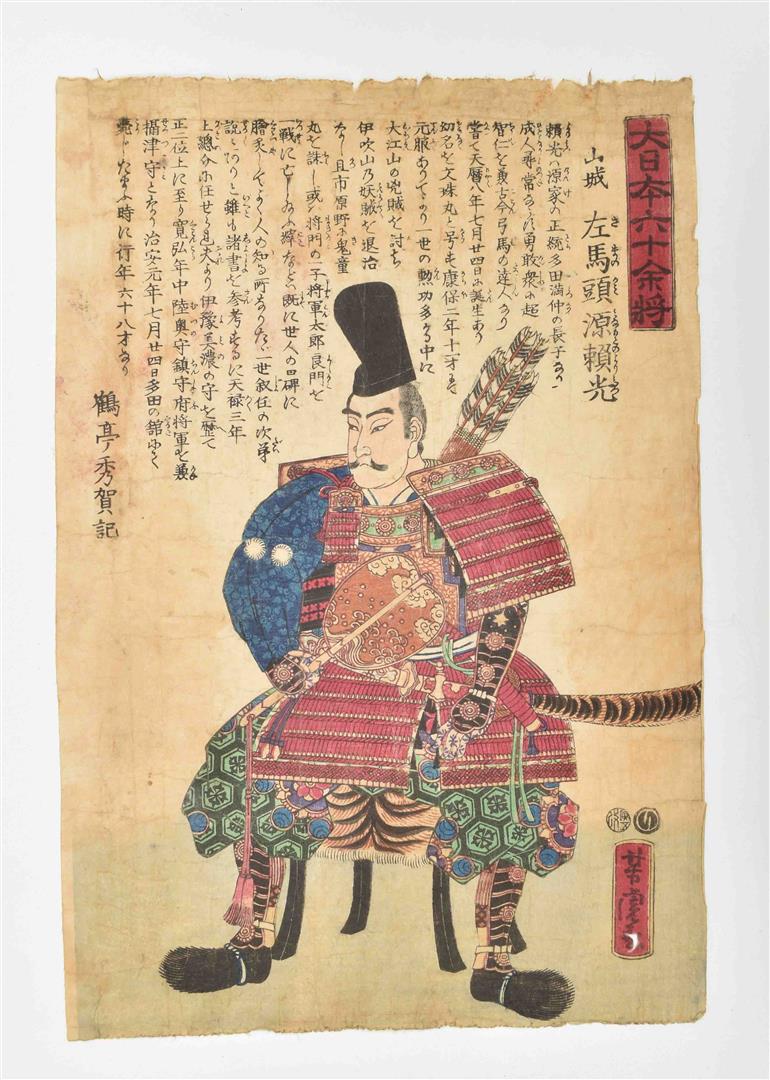 大日本六十余将
山城 左馬頭源頼光
頼光は源家の正統多田満仲の長子なり
成人尋常ならず勇敢衆に超
智仁を兼古今弓馬の達人なり
甞て天暦八年七月廿四日に誕生あり
幼名を文殊丸と号す康保二年十一才にて
元服ありてより一世の勲功多かる中に
大江山の兇賊を討ち
伊吹山乃妖賊を退治
なし且市原野に鬼童
丸を誅し或は将門の一子将軍太郎良門を
一戦に亡し給ふ
既に世人の口碑に
膾炙してよく人の知る所なりたゞ一世叙任の次第
説々ありと雖も諸書を参考するに天禄三年
上総介に任せられ夫より伊豫美濃の守を歴て
正二位上に至り寛弘年中陸奥守鎮守府将軍を兼
摂津守となり治安元年七月廿四日多田の舘にて
薨じたまふ時に行年六十八才なり
鶴亭秀賀記
芳虎画